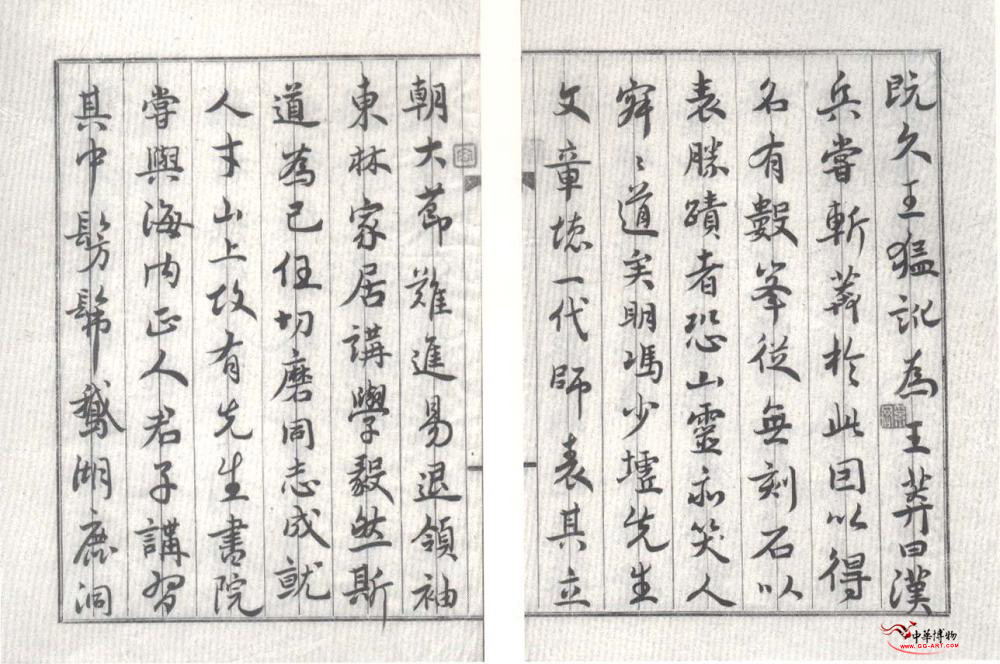 既久王猛訛為王莽曰漢
兵嘗斬莽於此因以得
名有數峯從無刻石以
表勝蹟者恐山靈亦笑人
寂〻道矣明馮少墟先生
文章德一代師表其立
朝大節難進易退領袖
東林家居講學毅然斯
道為己任切磨同志成就
人才山上故有先生書院
嘗與海內正人君子講習
其中髣髴鵝湖鹿洞
中華博物
www.gg-art.com